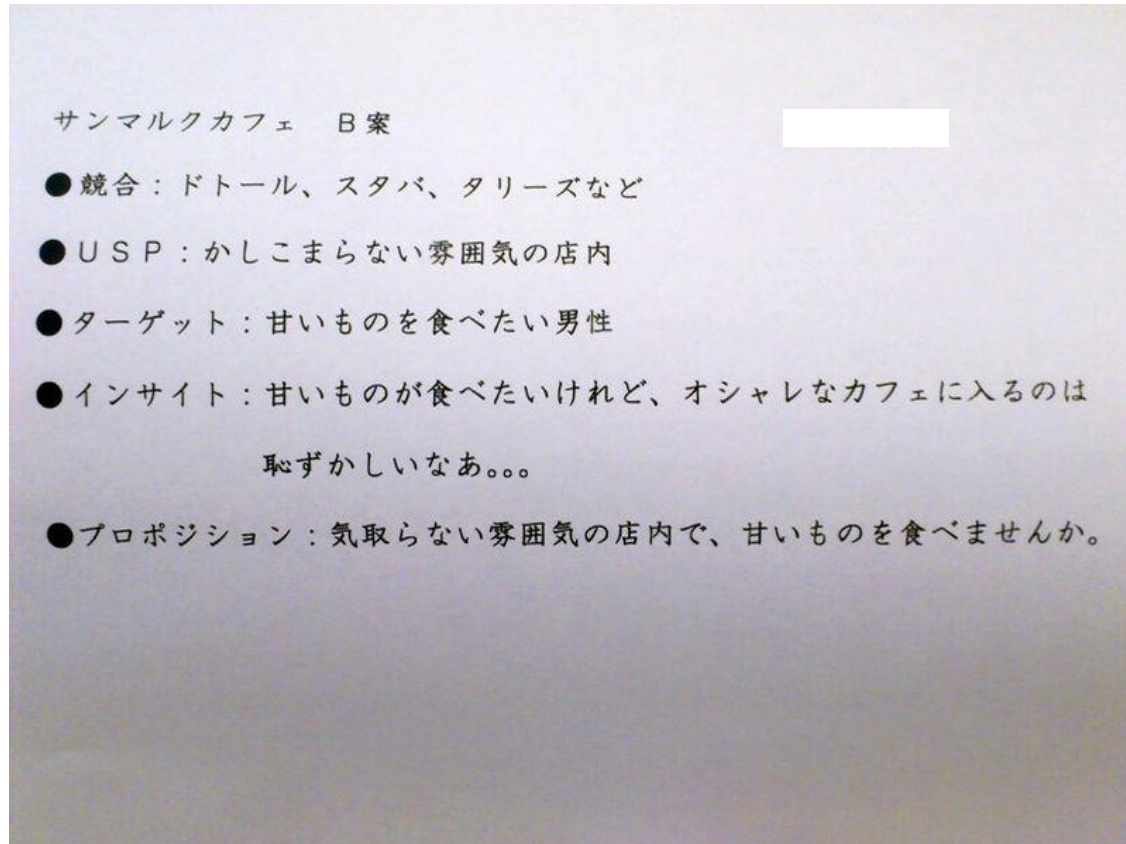 サンマルクカフェ　B案
●競合：ドトール、スタバ、タリーズなど
●ＵＳＰ：かしこまらない雰囲気の店内
●ターゲット：甘いものを食べたい男性
●インサイト：甘いものが食べたいけれど、オシャレなカフェに入るのは
恥ずかしいなあ。。。
●プロポジション：気取らない雰囲気の店内で、甘いものを食べませんか。